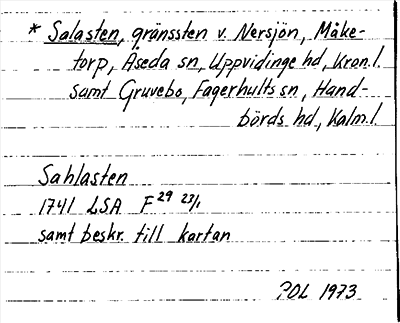 * Salasten, gränssten v. Nersjön, Måke-
torp, Åseda sn, Uppvidinge hd, Kron. l.
samt Gruvebo, Fagerhults sn, Hand-
börds hd, Kalm. l.
Sahlasten
1741 LSA F 29 23/1
samt beskr. till kartan
POL 1973